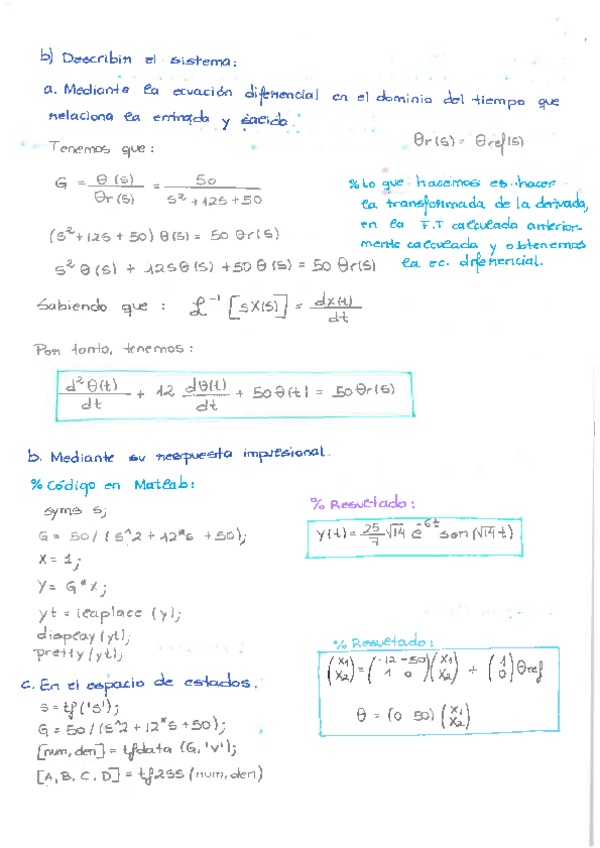 b) Describir el sistema:
a. Mediante la ecuación diferencial en el dominio del tiempo que
relaciona la entrada y salida.
Tenemos que:
θr(s) = θref(s)
G = θ(s)/θr(s) = 50/(s² + 12s + 50)
% Lo que hacemos es hacer
la transformada de la derivada,
en la F.T calculada anterior-
mente calculada y obtenemos
la ec. diferencial.
(s² + 12s + 50) θ(s) = 50 θr(s)
s² θ(s) + 12sθ(s) + 50 θ(s) = 50 θr(s)
Sabiendo que : ℒ⁻¹ [sX(s)] = dx(t)/dt
Por tanto, tenemos:
d²θ(t)/dt + 12 dθ(t)/dt + 50θ(t) = 50θr(s)
b. Mediante su respuesta impulsional.
% Código en Matlab:
syms s;
G = 50/(s^2 + 12*s + 50);
X = 1;
Y = G*X;
yt = ilaplace (y);
display (yt);
pretty (yt);
% Resultado:
y(t) = 25/7 √14 e^-6t sen (√14 t)
c. En el espacio de estados.
s = tf('s');
G = 50/(s^2 + 12*s + 50);
[num, den] = tfdata (G, 'v');
[A, B, C, D] = tf2ss (num, den)
% Resultado:
(x1 x2) = (-12 -50 1 0)(x1 x2) + (1 0) θref
θ = (0 50) (x1 x2)